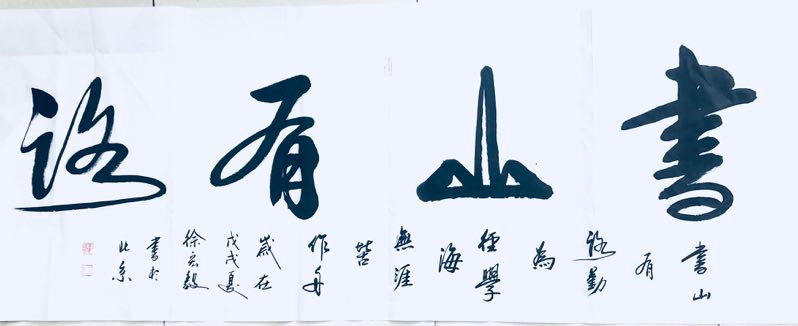 書山有路
書山
有
路勤
為
徑學
海
無涯
苦
作舟
歲在
戊戌夏
徐毅
書於
北京